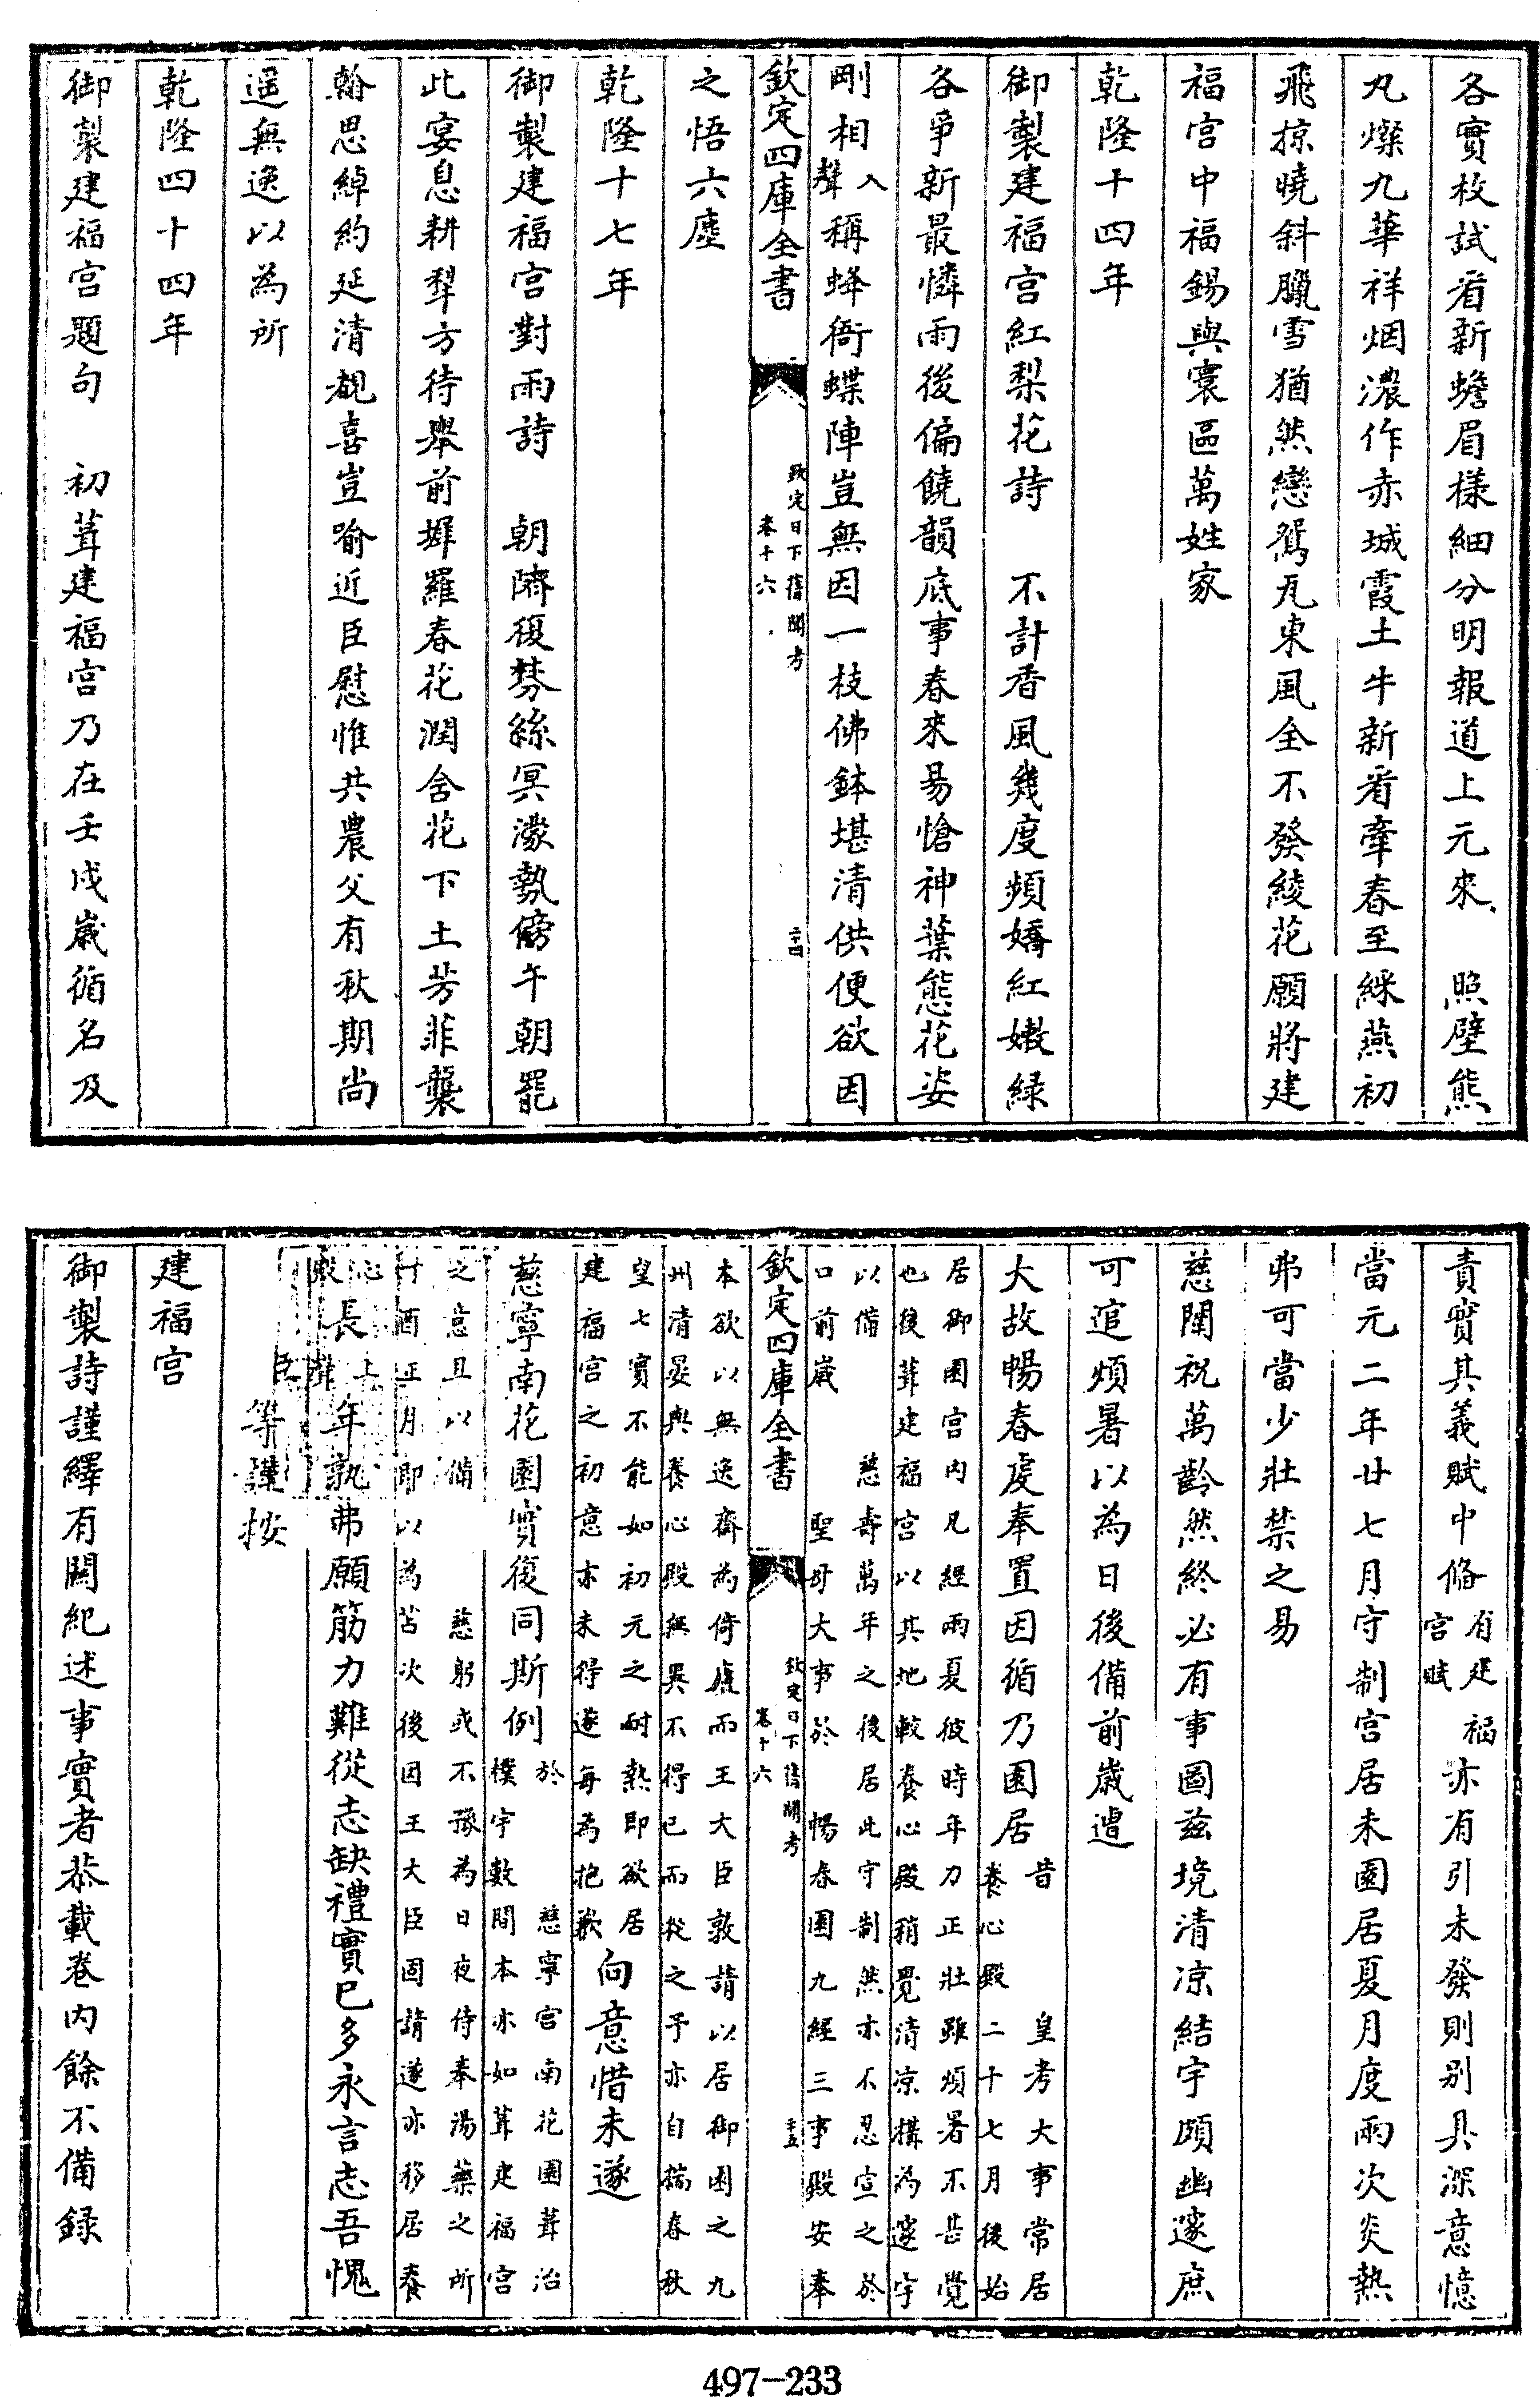 各實枚試看新蟾眉樣細分明報道上元來　照壁熊
丸燦九華祥烟濃作赤城霞土牛新看牽春至綵燕初
飛掠曉斜臘雪猶然戀鴛瓦東風全不發綾花願將建
福宮中福錫與寰區萬姓家
乾隆十四年
御製建福宮紅梨花詩　不計香風幾度頻嬌紅嫩緑
各爭新最憐雨後偏饒韻底事春來易愴神葉態花姿
剛相入聲稱蜂衙蝶陣豈無因一枝佛鉢堪清供便欲因
欽定四庫全書
欽定日下舊聞考
卷十六
二十四
之悟六塵
乾隆十七年
御製建福宮對雨詩　朝隮復棼絲冥濛勢傍午朝罷
此宴息耕犂方待舉前墀羅春花潤含花下土芳菲襲
翰思綽約延清覩喜豈踰近臣慰惟共農父有秋期尚
遥無逸以為所
乾隆四十四年
御製建福宮題句　初葺建福宮乃在壬戌歲循名及
責實其義賦中偹有建福宮賦亦有引未發則别具深意憶
當元二年廿七月守制宮居未園居夏月度雨次炎熱
弗可當少壯禁之易
慈闈祝萬齡然終必有事圖兹境清凉結宇頗幽邃庶
可逭煩暑以為日後備前歲遭
大故暢春虔奉置因循乃園居昔皇考大事常居
養心殿二十七月後始
居御園宮内凡經兩夏彼時年力正壯雖煩暑不甚覺
也後葺建福宮以其地較養心殿稍覺清凉構為邃宇
以備慈壽萬年之後居此守制然亦不忍宣之於
口前歲聖母大事於暢春園九經三事殿安奉
欽定四庫全書
欽定日下舊聞考
卷十六
二十五
本欲以無逸齋為倚廬而王大臣敦請以居御園之九
州清晏與養心殿無異不得已而從之予亦自揣春秋
望七實不能如初元之耐熱即欲居
建福宮之初意亦未得遂每為抱歉向意惜未遂
慈寧南花園實復同斯例於慈寧宮南花園葺治
樸宇數間本亦如葺建福宮
之意且以備慈躬或不豫為日夜侍奉湯藥之所
丁酉正月即以為苫次後因王大臣固請遂亦移居養
心殿長上聲年孰弗願筋力難從志缺禮實已多永言志吾愧
臣等謹按
建福宮
御製詩謹繹有關紀述事實者恭載卷内餘不備録
497-233